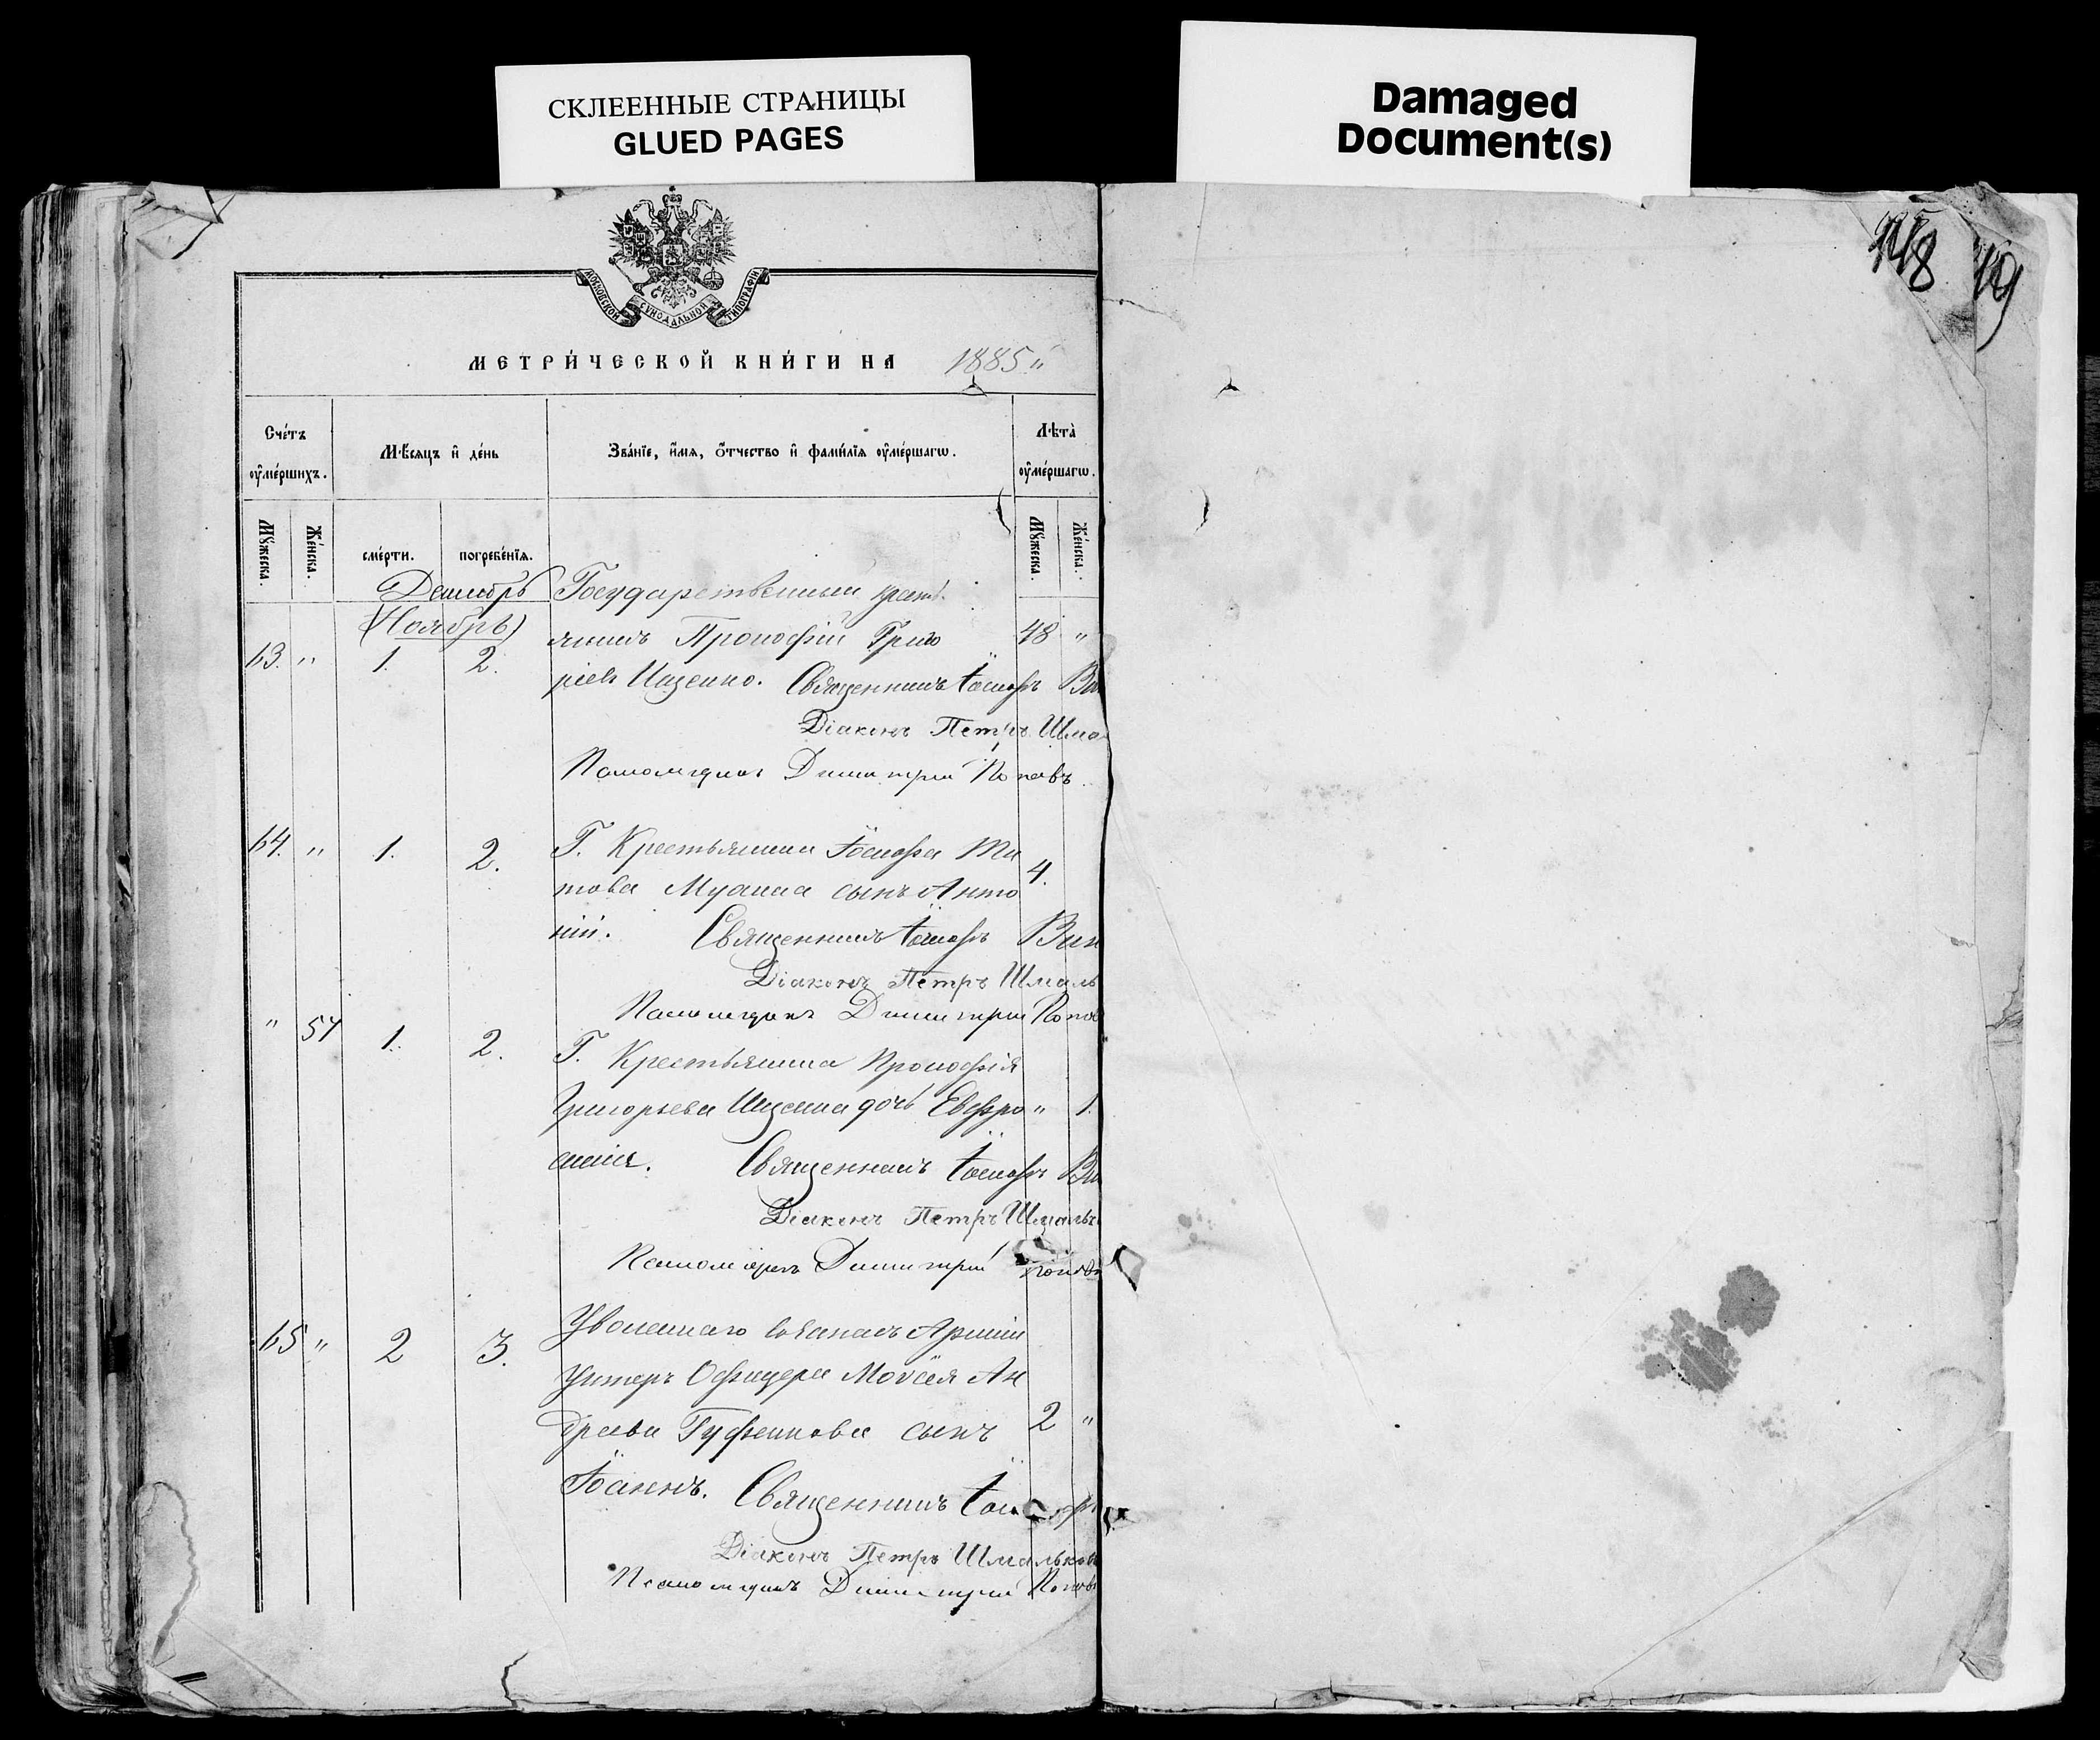 СКЛЕЕННЫЕ СТРАНИЦЫ
GLUED PAGES
Damaged
Document(s)
МОСКОВСКОЙ СѴНОДАЛЬНОЙ ТИПОГРАФІИ
МЕТРИ́ЧЕСКОЙ КНИ́ГИ НА 1885
Сче́тъ
оумершихъ.
Мѣсяцъ и де́нь
Зва́нїе, и́мя, о́тчество и фами́лїя оуме́ршагѡ.
Лѣта̀
оуме́ршагѡ.
Мꙋжеска.
Же́нска.
сме́рти.
погребе́нїя.
Мꙋжеска.
Же́нска.
Декабрь Государственный крест.
(Ноябрь)
янинъ Прокофій Григо 48 "
63. " 1. 2.
рьевъ Ищенко. Священникъ Іосифъ Ви
Діаконъ Петръ Шма
Псаломщикъ Димитрій Поповъ.
64. " 1. 2. Г. Крестьянина Іосифа Ти 4.
това сынъ Анто
ній. Священникъ Іосифъ Вин
Діаконъ Петръ Шмаль
Псаломщикъ Димитрій Попов
" 54 1. 2. Г. Крестьянина Прокофія
Григорьева Ищенка дочь Евфро " 1.
синія. Священникъ Іосифъ Ви
Діаконъ Петръ Шмальк
Псаломщикъ Димитрій Поповъ
65 " 2 3. Уволеннаго Арміи
Унтеръ Офицера Моѵсея Ан
дреева сынъ 2 "
Іоаннъ. Священникъ Іосифъ
Діаконъ Петръ Шмальков
Псаломщикъ Димитрій Поповъ